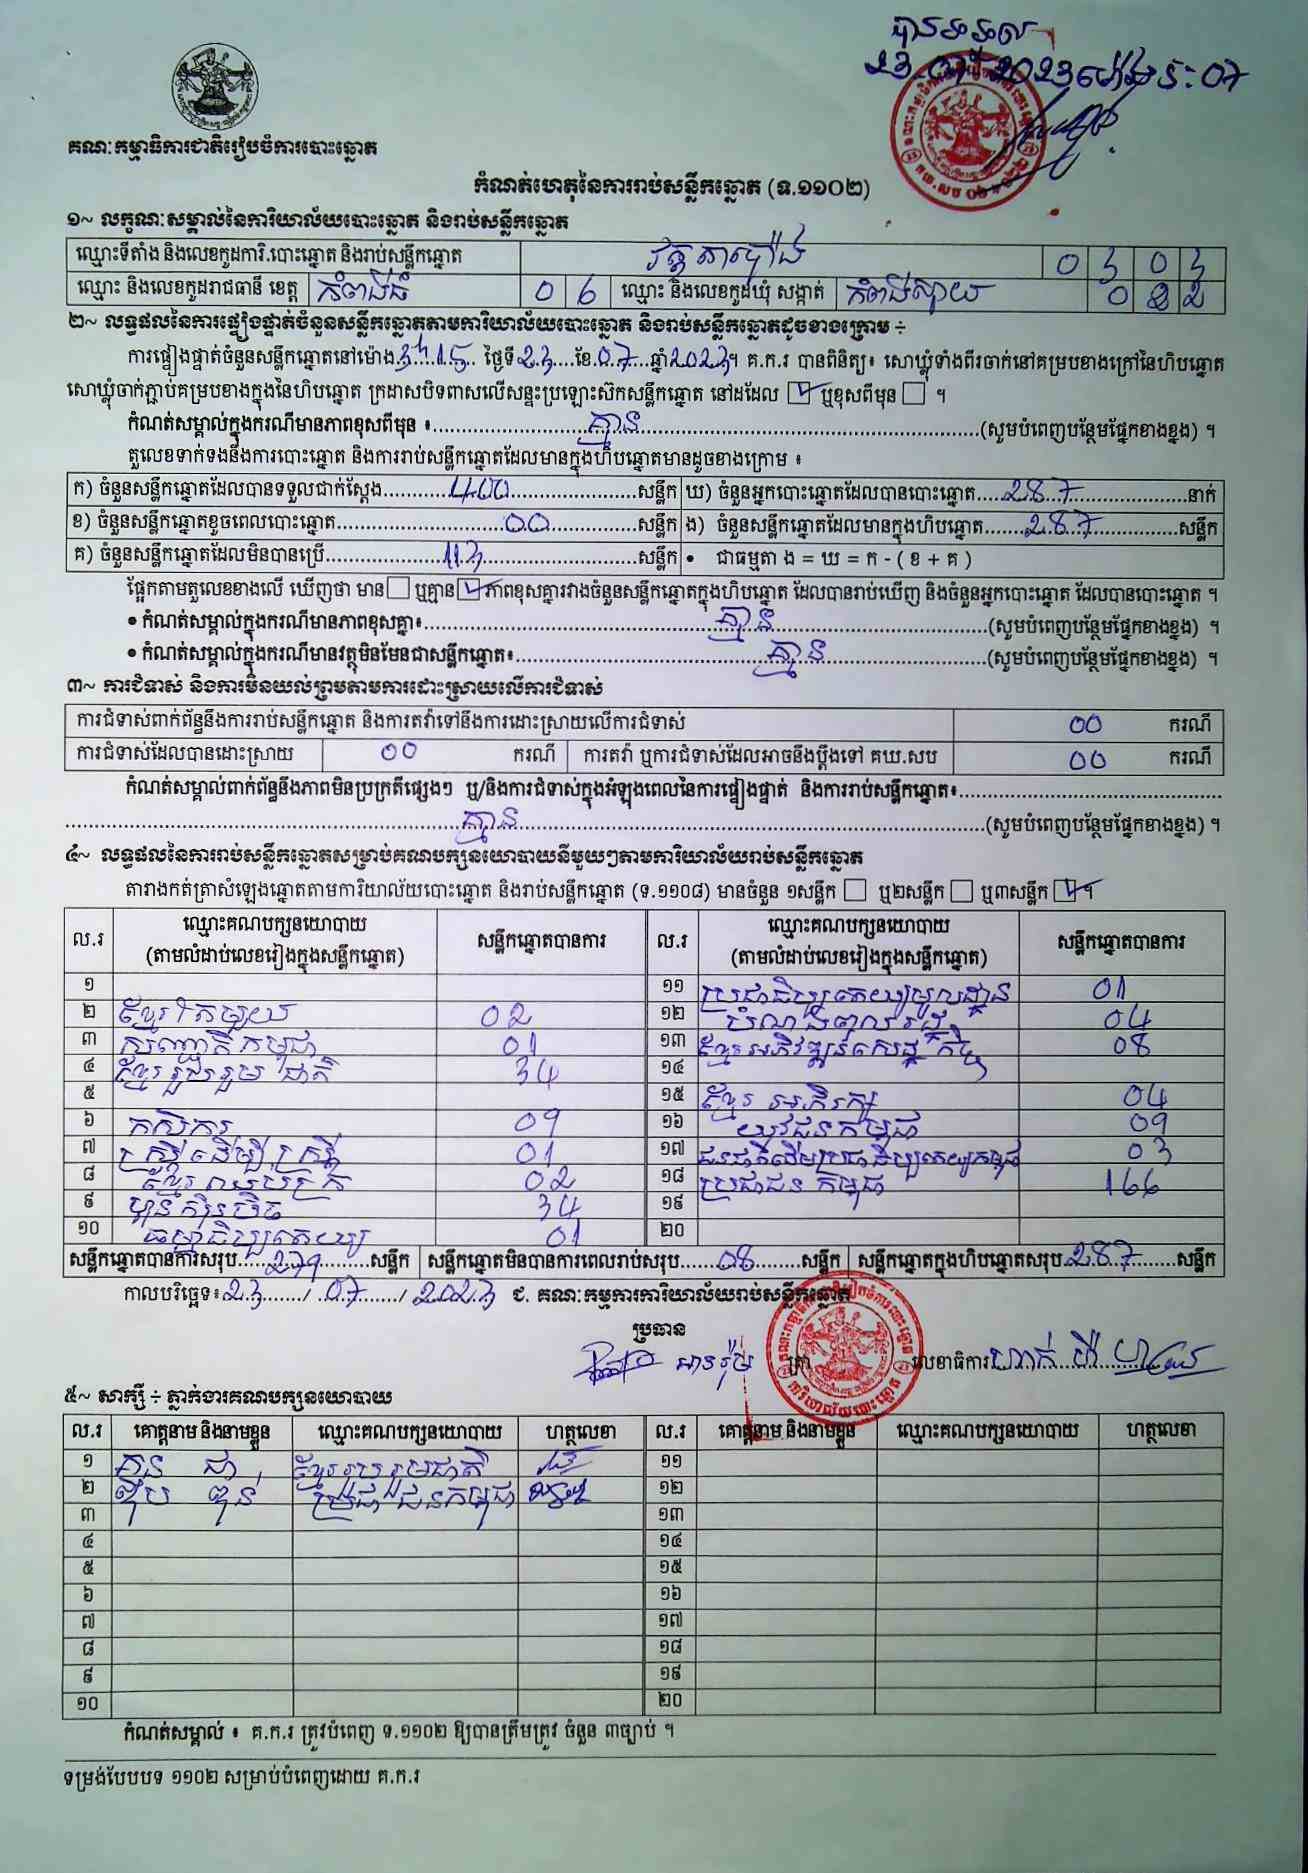 បានទទួល
23-07-2023 ម៉ោង ៖ 07
គណៈកម្មាធិការជាតិរៀបចំការបោះឆ្នោត
កំណត់ហេតុនៃការរាប់សន្លឹកឆ្នោត (ទ.១១០២)
១~ លក្ខណៈសម្គាល់នៃការិយាល័យបោះឆ្នោត និងរាប់សន្លឹកឆ្នោត
ឈ្មោះទីតាំង និងលេខកូដការិ.បោះឆ្នោត និងរាប់សន្លឹកឆ្នោត 0 3 0 3
ឈ្មោះ និងលេខកូដរាជធានី ខេត្ត កំពង់ធំ 0 6 ឈ្មោះ និងលេខកូដឃុំ សង្កាត់ កំពង់ស្វាយ 0 2 2
២~ លទ្ធផលនៃការផ្ទៀងផ្ទាត់ចំនួនសន្លឹកឆ្នោតតាមការិយាល័យបោះឆ្នោត និងរាប់សន្លឹកឆ្នោតដូចខាងក្រោម ÷
ការផ្ទៀងផ្ទាត់ចំនួនសន្លឹកឆ្នោតនៅម៉ោង 3h15 ថ្ងៃទី 23 ខែ 07 ឆ្នាំ 2023 ។ គ.ក.រ បានពិនិត្យ៖ សោឃ្លុំទាំងពីរចាក់នៅគម្របខាងក្រៅនៃហិបឆ្នោត
សោឃ្លុំចាក់ភ្ជាប់គម្របខាងក្នុងនៃហិបឆ្នោត ក្រដាសបិទពាសលើសន្ទះប្រឡោះស៊កសន្លឹកឆ្នោត នៅដដែល ☑ ឬខុសពីមុន ☐ ។
កំណត់សម្គាល់ក្នុងករណីមានភាពខុសពីមុន ៖ គ្មាន (សូមបំពេញបន្ថែមផ្នែកខាងខ្នង) ។
តួលេខទាក់ទងនឹងការបោះឆ្នោត និងការរាប់សន្លឹកឆ្នោតដែលមានក្នុងហិបឆ្នោតមានដូចខាងក្រោម ៖
ក) ចំនួនសន្លឹកឆ្នោតដែលបានទទួលជាក់ស្តែង 400 សន្លឹក ឃ) ចំនួនអ្នកបោះឆ្នោតដែលបានបោះឆ្នោត 287 នាក់
ខ) ចំនួនសន្លឹកឆ្នោតខូចពេលបោះឆ្នោត 00 សន្លឹក ង) ចំនួនសន្លឹកឆ្នោតដែលមានក្នុងហិបឆ្នោត 287 សន្លឹក
គ) ចំនួនសន្លឹកឆ្នោតដែលមិនបានប្រើ 113 សន្លឹក • ជាធម្មតា ង = ឃ = ក - ( ខ + គ )
ផ្អែកតាមតួលេខខាងលើ ឃើញថា មាន ☐ ឬគ្មាន ☑ ភាពខុសគ្នារវាងចំនួនសន្លឹកឆ្នោតក្នុងហិបឆ្នោត ដែលបានរាប់ឃើញ និងចំនួនអ្នកបោះឆ្នោត ដែលបានបោះឆ្នោត ។
• កំណត់សម្គាល់ក្នុងករណីមានភាពខុសគ្នា៖ គ្មាន (សូមបំពេញបន្ថែមផ្នែកខាងខ្នង) ។
• កំណត់សម្គាល់ក្នុងករណីមានវត្ថុមិនមែនជាសន្លឹកឆ្នោត៖ គ្មាន (សូមបំពេញបន្ថែមផ្នែកខាងខ្នង) ។
៣~ ការជំទាស់ និងការមិនយល់ព្រមតាមការដោះស្រាយលើការជំទាស់
ការជំទាស់ពាក់ព័ន្ធនឹងការរាប់សន្លឹកឆ្នោត និងការតវ៉ាទៅនឹងការដោះស្រាយលើការជំទាស់ 00 ករណី
ការជំទាស់ដែលបានដោះស្រាយ 00 ករណី ការតវ៉ា ឬការជំទាស់ដែលអាចនឹងប្តឹងទៅ គឃ.សប 00 ករណី
កំណត់សម្គាល់ពាក់ព័ន្ធនឹងភាពមិនប្រក្រតីផ្សេងៗ ឬ/និងការជំទាស់ក្នុងអំឡុងពេលនៃការផ្ទៀងផ្ទាត់ និងការរាប់សន្លឹកឆ្នោត៖
គ្មាន (សូមបំពេញបន្ថែមផ្នែកខាងខ្នង) ។
៤~ លទ្ធផលនៃការរាប់សន្លឹកឆ្នោតសម្រាប់គណបក្សនយោបាយនីមួយៗតាមការិយាល័យរាប់សន្លឹកឆ្នោត
តារាងកត់ត្រាសំឡេងឆ្នោតតាមការិយាល័យបោះឆ្នោត និងរាប់សន្លឹកឆ្នោត (ទ.១១០៨) មានចំនួន ១សន្លឹក ☐ ឬ២សន្លឹក ☐ ឬ៣សន្លឹក ☑ ។
ល.រ ឈ្មោះគណបក្សនយោបាយ (តាមលំដាប់លេខរៀងក្នុងសន្លឹកឆ្នោត) សន្លឹកឆ្នោតបានការ ល.រ ឈ្មោះគណបក្សនយោបាយ (តាមលំដាប់លេខរៀងក្នុងសន្លឹកឆ្នោត) សន្លឹកឆ្នោតបានការ
១ ១១ ប្រជាធិបតេយ្យមូលដ្ឋាន 01
២ ខ្មែរតែមួយ 02 ១២ បំណងពលរដ្ឋ 04
៣ សញ្ជាតិកម្ពុជា 01 ១៣ ខ្មែរអភិវឌ្ឍន៍សេដ្ឋកិច្ច 08
៤ ខ្មែររួបរួមជាតិ 34 ១៤
៥ ១៥ ខ្មែរអភិរក្ស 04
៦ កសិករ 09 ១៦ យុវជនកម្ពុជា 09
៧ ស្ត្រីដើម្បីស្ត្រី 01 ១៧ ជនជាតិដើមប្រជាធិបតេយ្យកម្ពុជា 03
៨ ខ្មែរឈប់ក្រ 02 ១៨ ប្រជាជនកម្ពុជា 166
៩ ហ៊្វុនស៊ិនប៉ិច 34 ១៩
១០ ធម្មាធិបតេយ្យ 01 ២០
សន្លឹកឆ្នោតបានការសរុប 279 សន្លឹក សន្លឹកឆ្នោតមិនបានការពេលរាប់សរុប 08 សន្លឹក សន្លឹកឆ្នោតក្នុងហិបឆ្នោតសរុប 287 សន្លឹក
កាលបរិច្ឆេទ៖ 23 / 07 / 2023 ជ. គណៈកម្មការការិយាល័យរាប់សន្លឹកឆ្នោត
ប្រធាន
ត្រា លេខាធិការ
៥~ សាក្សី ÷ ភ្នាក់ងារគណបក្សនយោបាយ
ល.រ គោត្តនាម និងនាមខ្លួន ឈ្មោះគណបក្សនយោបាយ ហត្ថលេខា ល.រ គោត្តនាម និងនាមខ្លួន ឈ្មោះគណបក្សនយោបាយ ហត្ថលេខា
១ ខ្មែររួបរួមជាតិ ១១
២ ប្រជាជនកម្ពុជា ១២
៣ ១៣
៤ ១៤
៥ ១៥
៦ ១៦
៧ ១៧
៨ ១៨
៩ ១៩
១០ ២០
កំណត់សម្គាល់ ៖ គ.ក.រ ត្រូវបំពេញ ទ.១១០២ ឱ្យបានត្រឹមត្រូវ ចំនួន ៣ច្បាប់ ។
ទម្រង់បែបបទ ១១០២ សម្រាប់បំពេញដោយ គ.ក.រ